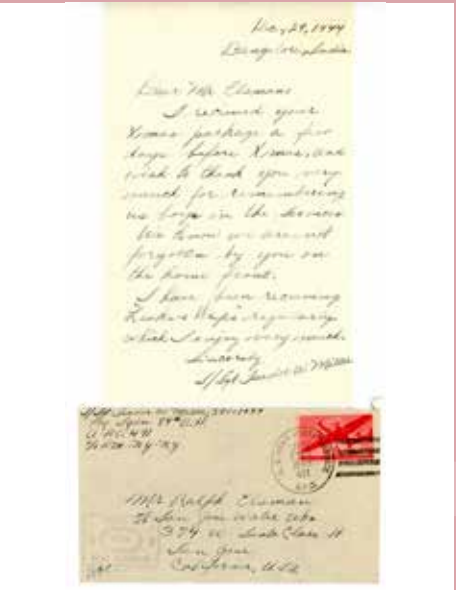 Dec, 29, 1944
Bangalore, India
Dear Mr. Elsman
I received your
Xmas package a few
days before Xmas, and
wish to thank you very
much for remembering
us boys in the service
We know we are not
forgotten by you on
the home front.
I have been receiving
regularly
which I enjoy very much.
Sincerely
S/Sgt W.
S/Sgt W.
84th
N.Y.
Mr Ralph Elsman
% San Jose Water Wks
374 W Santa Clara St
San Jose
California, USA